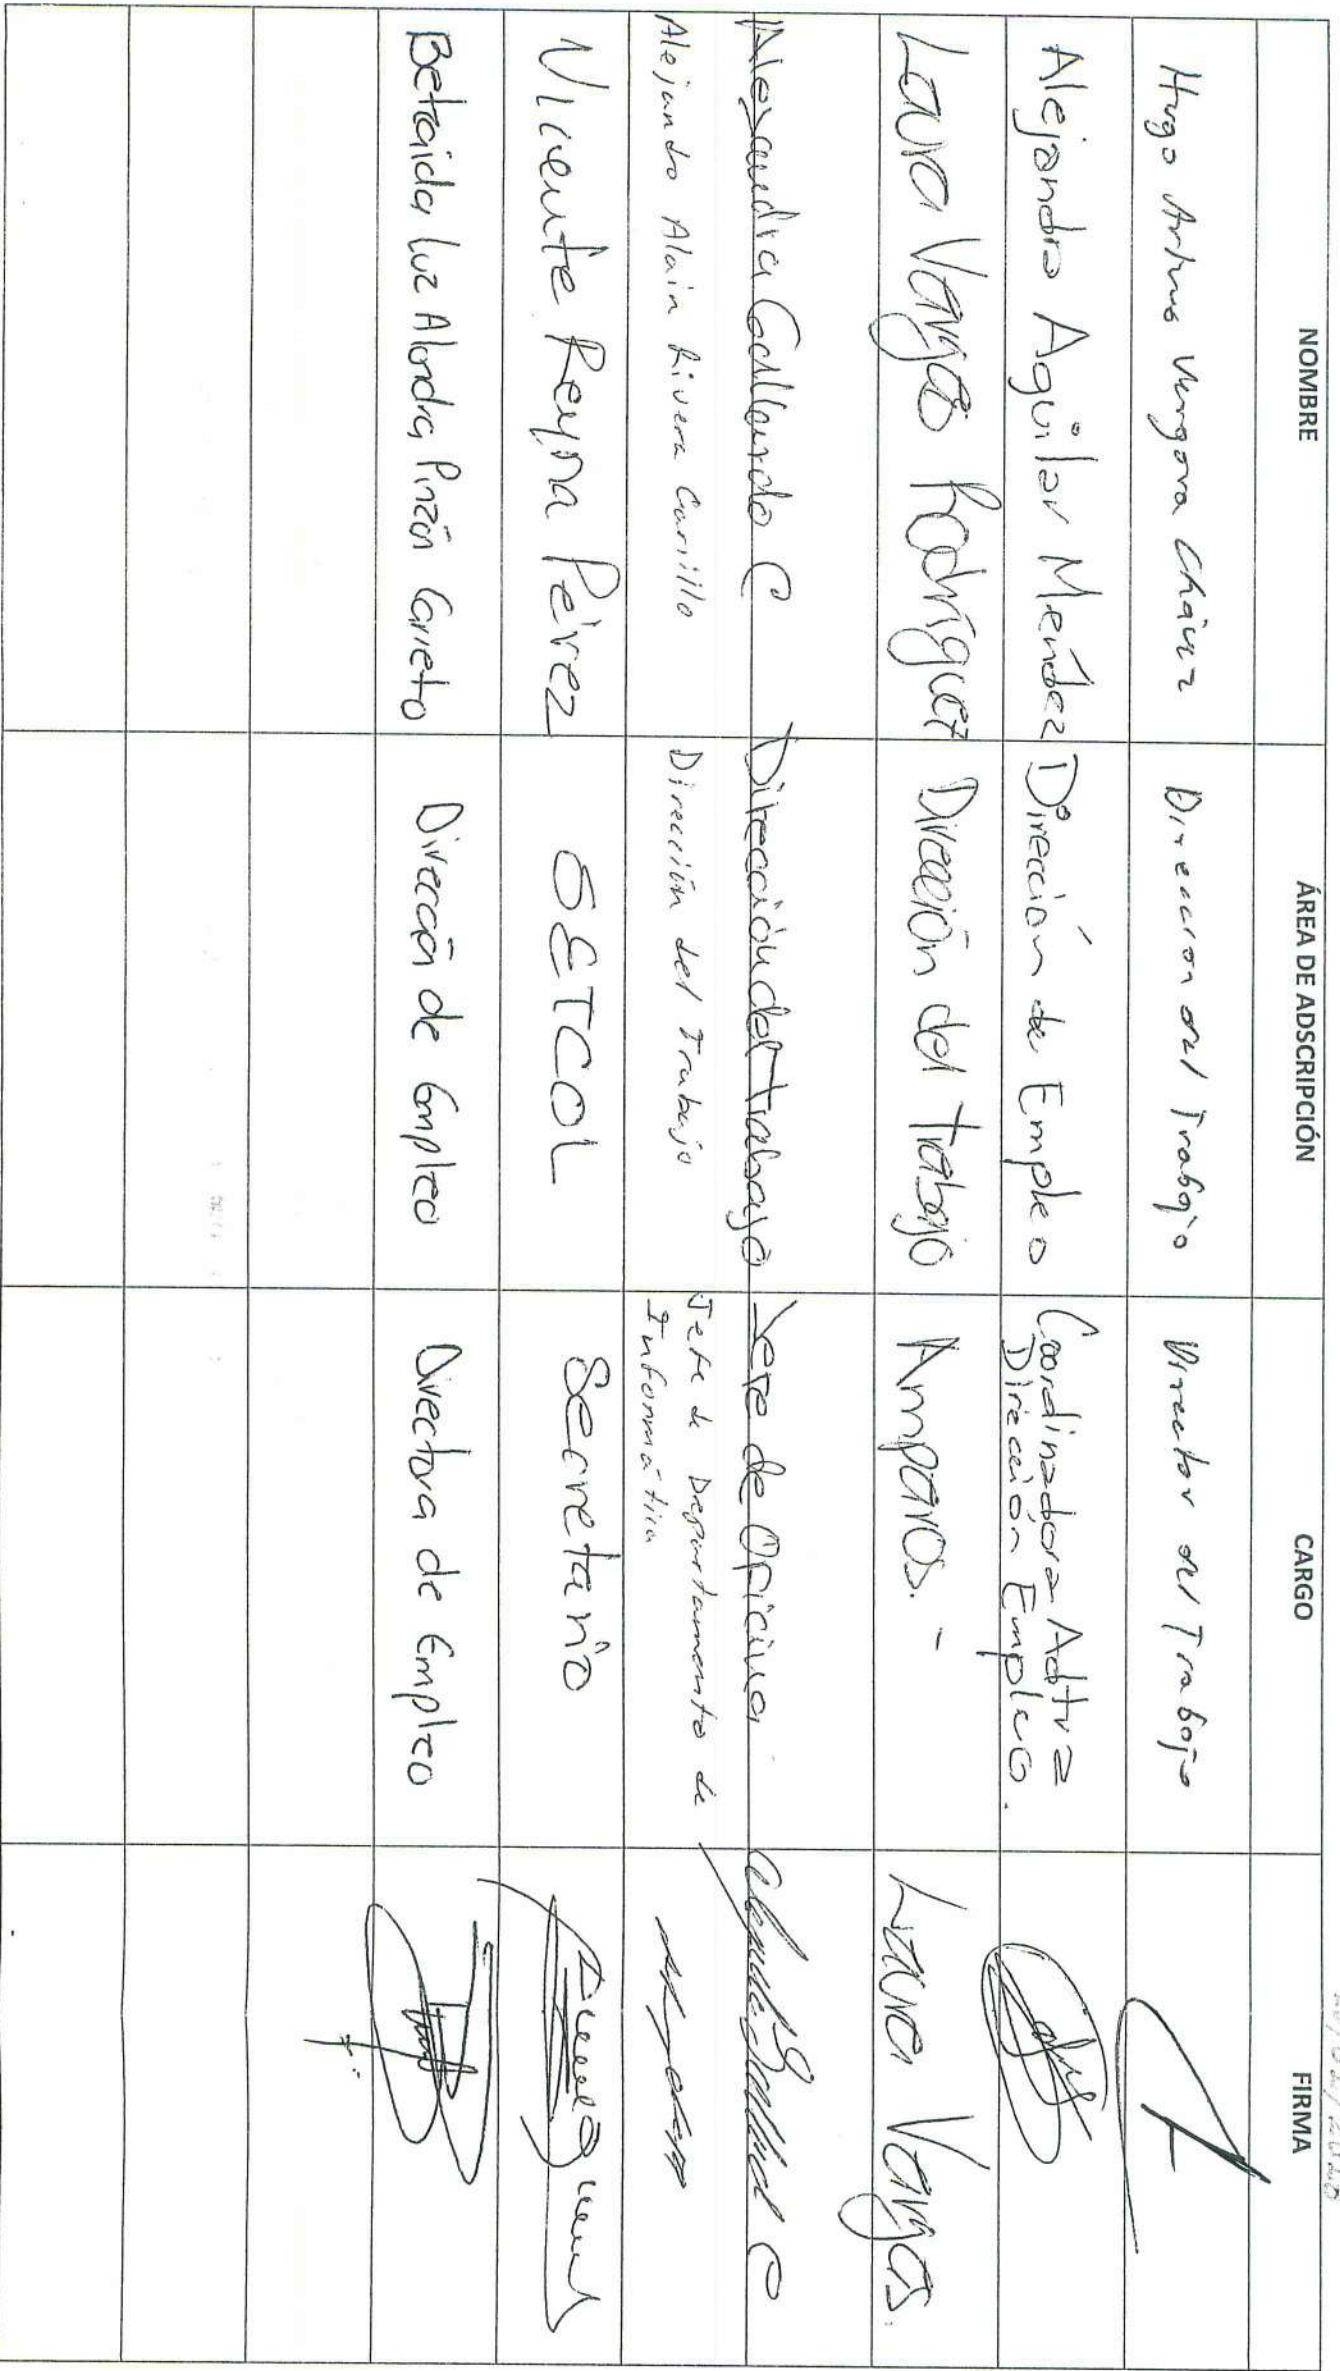 NOMBRE ÁREA DE ADSCRIPCIÓN CARGO FIRMA
Hugo Arturo Vergara Chávez Direccion del Trabajo Director del Trabajo
Alejandra Aguilar Mendez Dirección de Empleo Coordinadora Adtva
Dirección Empleo.
Laura Vargas Rodríguez Dirección del trabajo Amparos. - Laura Vargas.
Alexandra Gallardo C Dirección del trabajo Jefe de Oficina
Alejandro Alain Rivera Carillo Dirección del Trabajo Jefe de Departamento de
Informática
Vicente Reyna Pérez SETCOL Secretario
Betzaida Luz Alondra Pinzón Carreto Dirección de Empleo Directora de Empleo